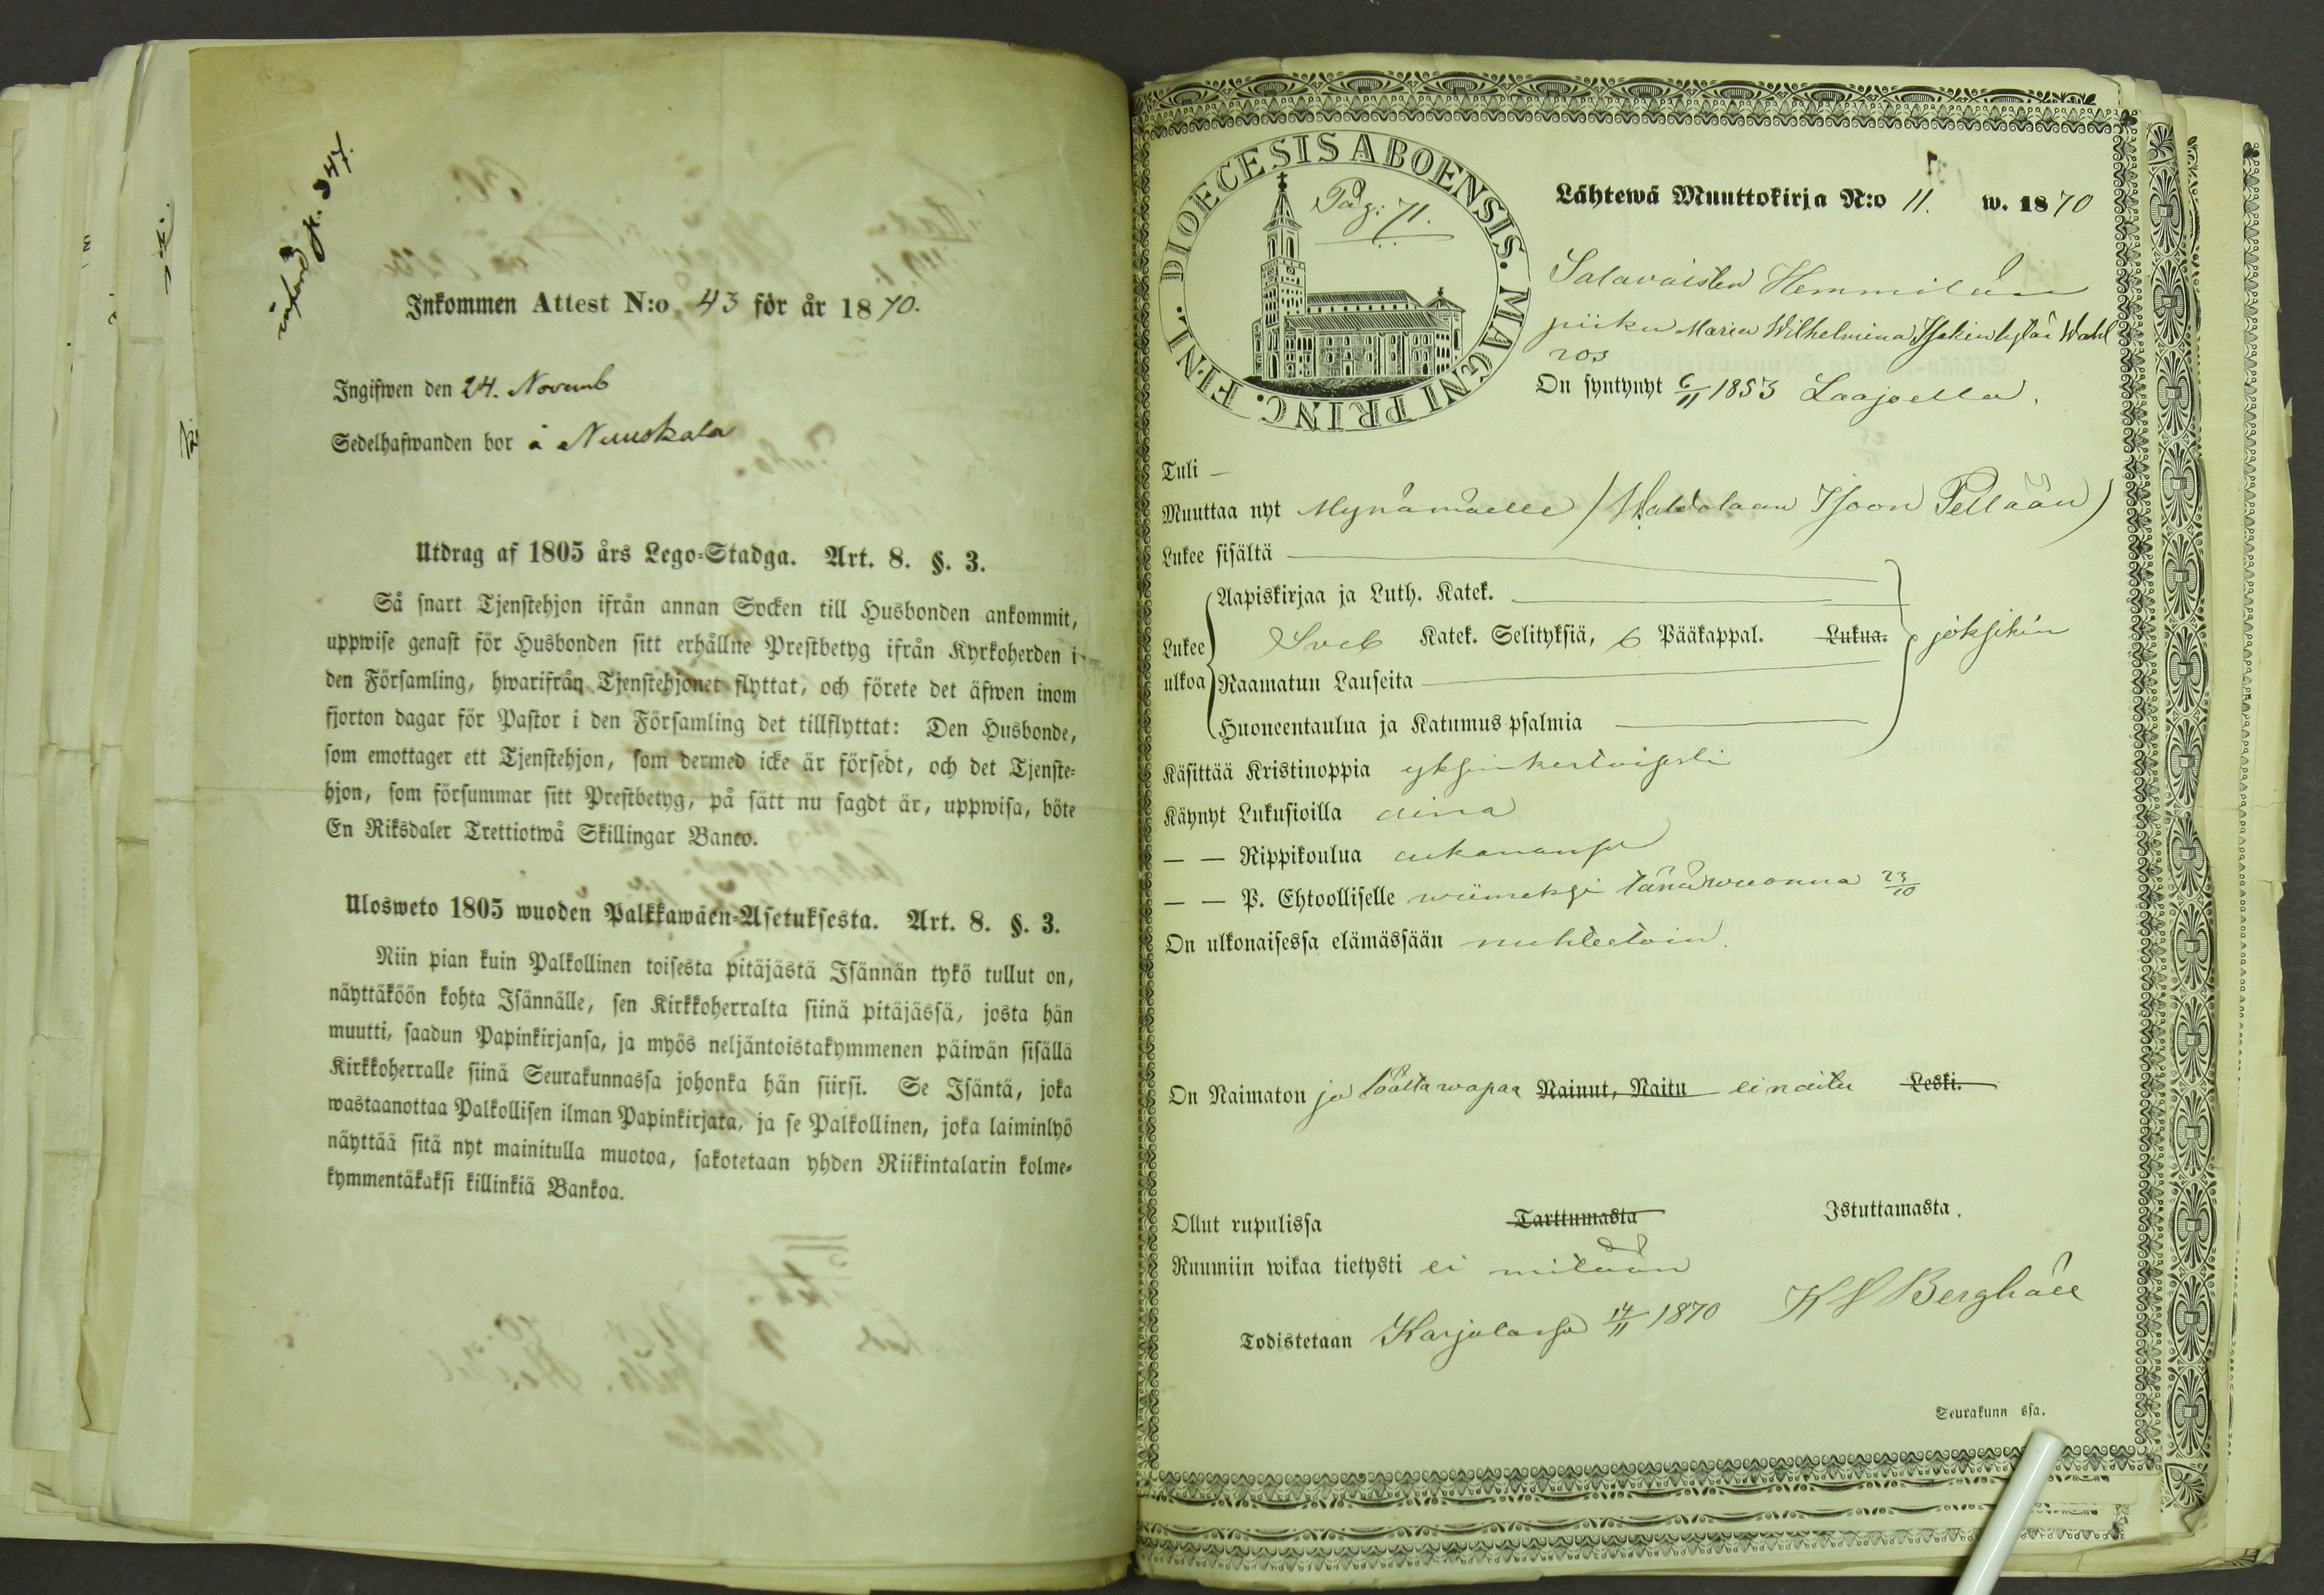 införd p. 347.
Inkommen Attest N:o 43 för år 1870.
Ingifwen den 24. Novemb
Sedelhafwanden bor å Nuuskala
Utdrag af 1805 års Lego-Stadga. Art. 8. §. 3.
Så snart Tjenstehjon ifrån annan Socken till Husbonden ankommit,
uppwise genast för Husbonden sitt erhållne Prestbetyg ifrån Kyrkoherden i
den Församling, hwarifrån Tjenstehjonet flyttat, och förete det äfwen inom
fjorton dagar för Pastor i den Församling det tillflyttat: Den Husbonde,
som emottager ett Tjenstehjon, som dermed icke är försedt, och det Tjenste-
hjon, som försummar sitt Prestbetyg, på sätt nu sagdt är, uppwisa, böte
En Riksdaler Trettiotwå Skillingar Banco.
Ulosweto 1805 wuoden Palkkawäen-Asetuksesta. Art. 8. §. 3.
Niin pian kuin Palkollinen toisesta pitäjästä Isännän tykö tullut on,
näyttäköön kohta Isännälle, sen Kirkkoherralta siinä pitäjässä, josta hän
muutti, saadun Papinkirjansa, ja myös neljäntoistakymmenen päiwän sisällä
Kirkkoherralle siinä Seurakunnassa johonka hän siirsi. Se Isäntä, joka
wastaanottaa Palkollisen ilman Papinkirjata, ja se Palkollinen, joka laiminlyö
näyttää sitä nyt mainitulla muotoa, sakotetaan yhden Riikintalarin kolme-
kymmentäkaksi killinkiä Bankoa.
DIOECESIS ABOENSIS. MAGNI PRINC. FINL.
Pag: 71.
Lähtewä Muuttokirja N:o 11. w. 1870
Salavaisten Hemmilän
piika Maria Wilhelmina Isakintytär Wahl
ros
On syntynyt 6/11 1853 Laajoella.
Tuli —
Muuttaa nyt Mynämäelle (Waldolaan Isoon Pellään)
Lukee sisältä
Aapiskirjaa ja Luth. Katek.
Lukee ulkoa Sveb Katek. Selityksiä, 6 Pääkappal. Lukua. joksikin
Raamatun Lauseita
Huoneentaulua ja Katumus psalmia
Käsittää Kristinoppia yksinkertaisesti
Käynyt Lukusioilla aina
— — Rippikoulua aikanansa
— — P. Ehtoolliselle wiimeksi tänäwuonna 23/10
On ulkonaisessa elämässään nuhteetoin.
On Naimaton ja wapaa Nainut, Naitu ei naitu Leski.
Ollut rupulissa Tarttumasta Istuttamasta.
Ruumiin wikaa tietysti ei mitään
Todistetaan Karjalassa 14/11 1870 K F Berghäll
Seurakunn ssa.